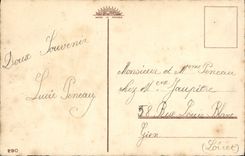 Doux Souvenir
Lucie Peneau
Monsieur et Mme Peneau
chez M
58 Rue Louis Blanc
Gien
(Loiret)
290